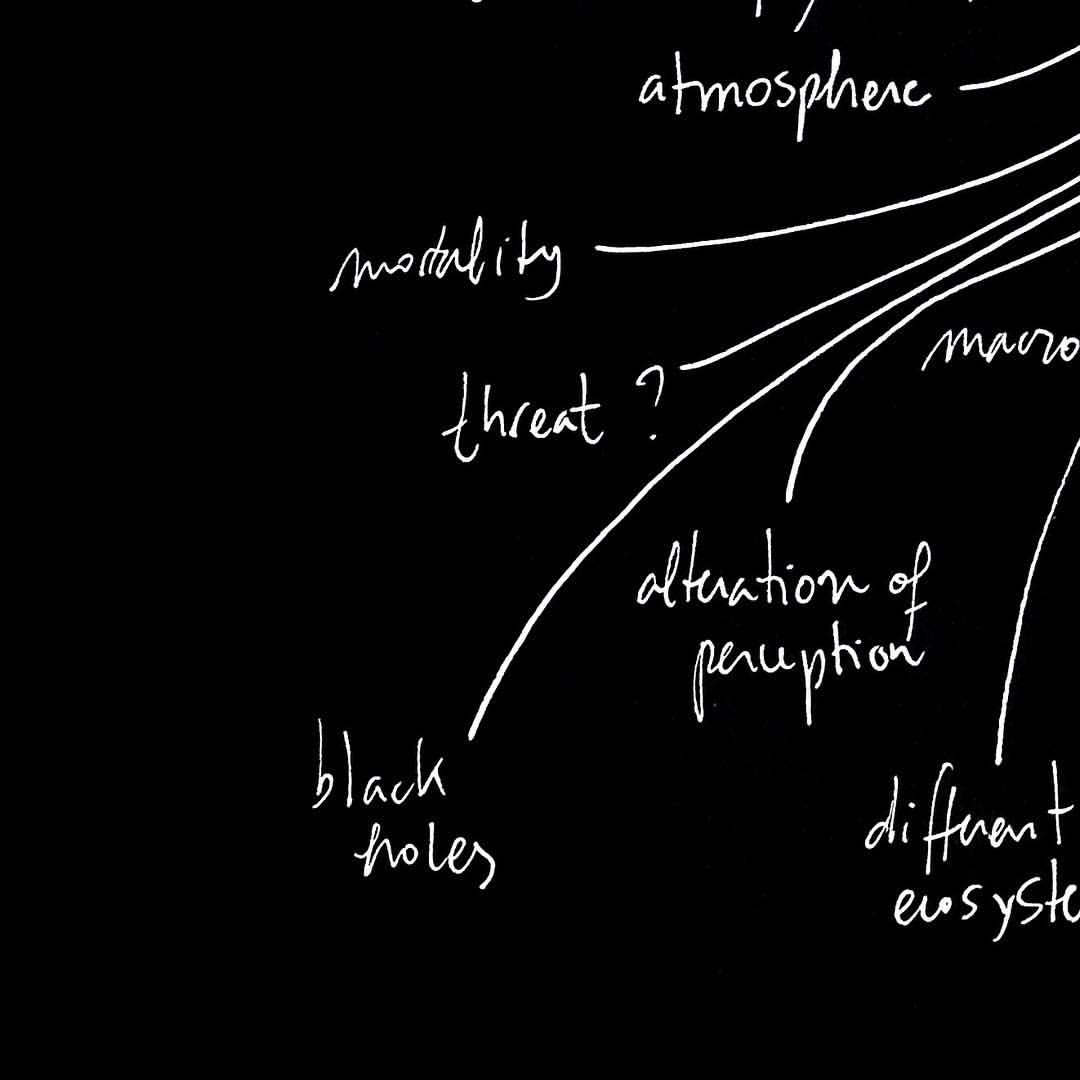 atmosphere
mortality
macro
threat ?
alteration of
perception
black
holes
different
ecosyste